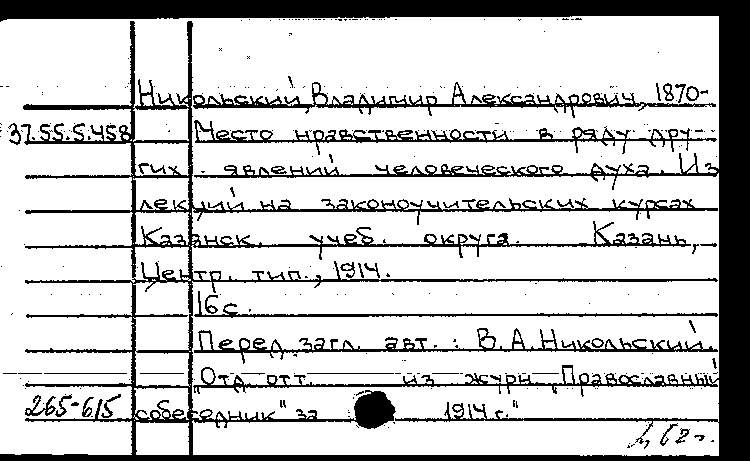 Никольский, Владимир Александрович, 1870-
37.55.5.458 Место нравственности в ряду дру-
гих явлений человеческого духа. Из
лекций на законоучительских курсах
Казанск. учеб. округа. Казань,
Центр. тип., 1914.
16 с.
Перед загл. авт.: В.А. Никольский.
"Отд. отт. из журн. "Православный
265-615 собеседник" за 1914 г."